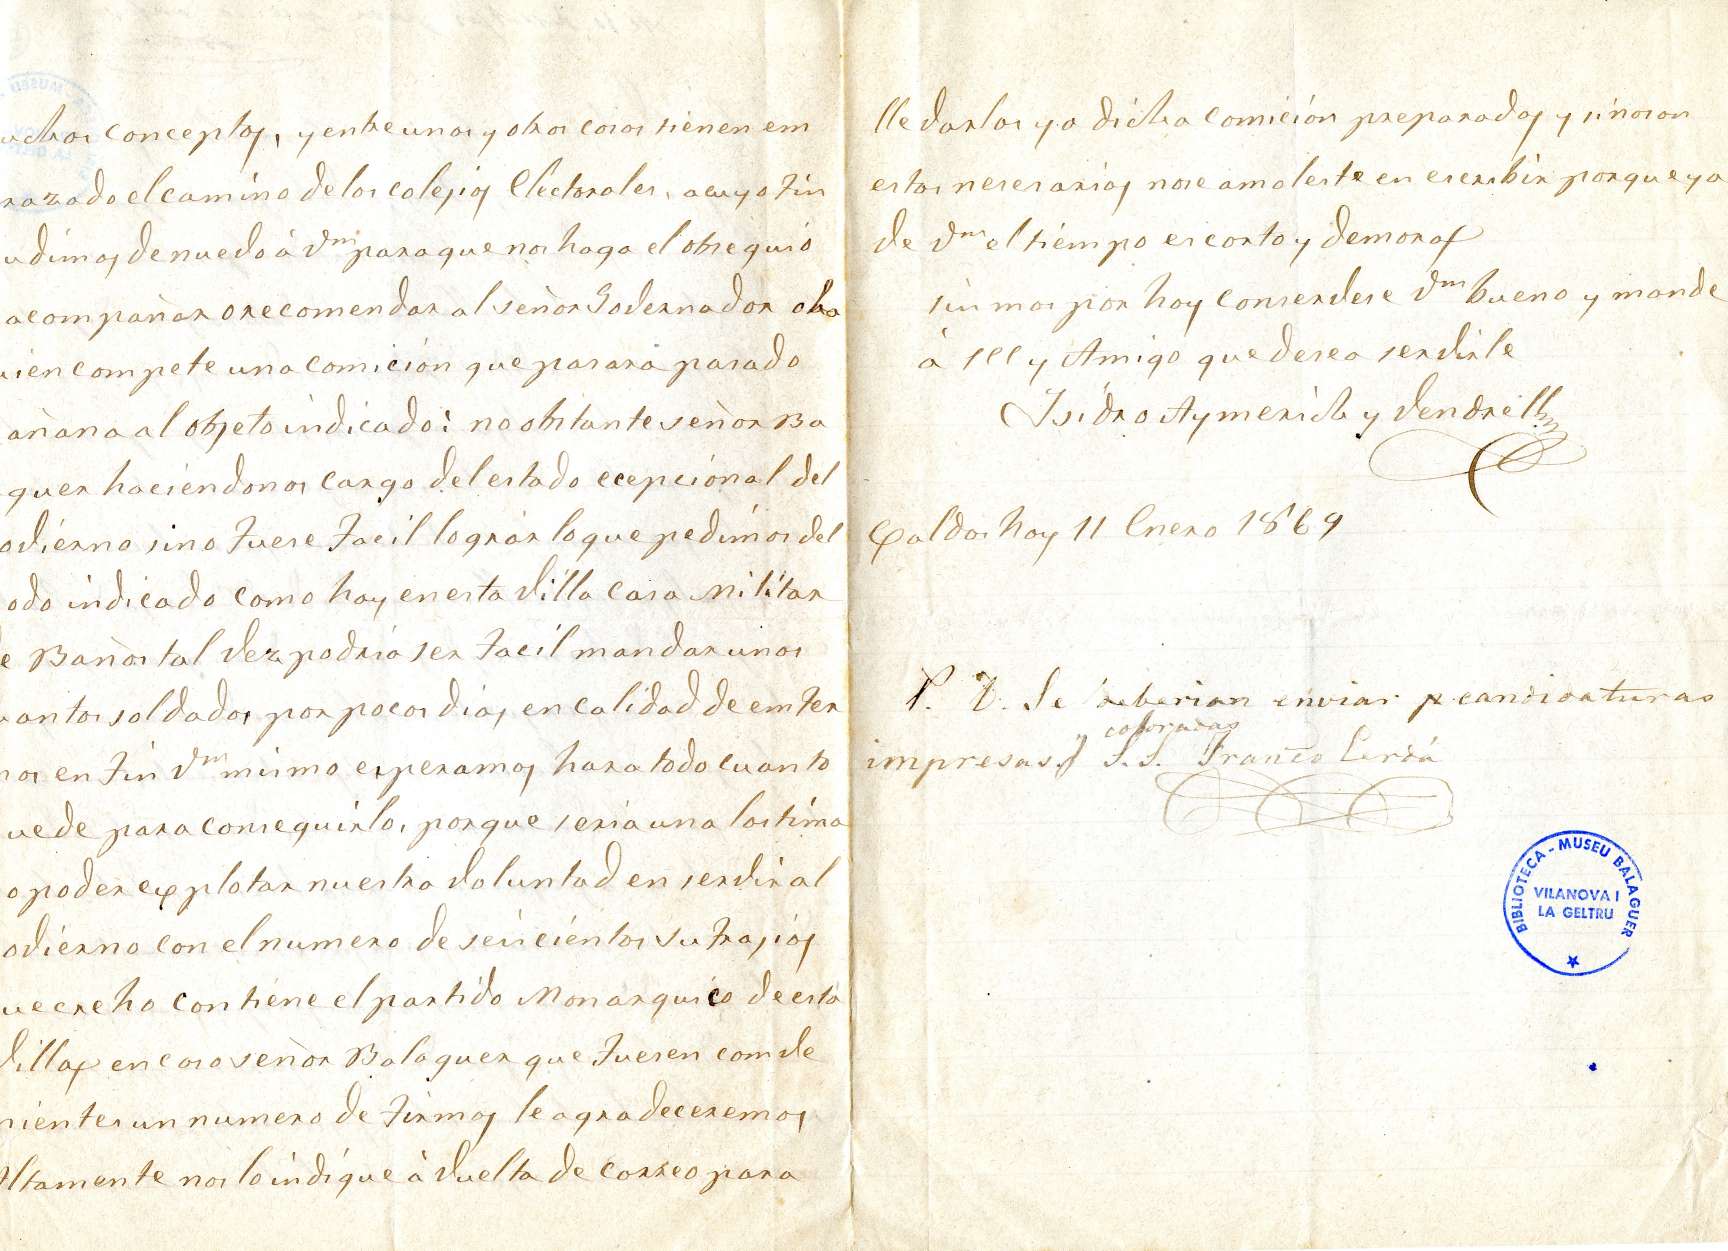 uchos conceptos, y entre unos y otros casi tienen em
razado el camino de los colejios Electorales, a cuyo fin
udimos de nuebo à Vm para que nos haga el obsequio
acompañar o recomendar al señor Gobernador o ha
ien compete una comición que pasarà pasado
añana al objeto indicado: no obstante señor Ba
quer haciéndonos cargo del estado ecepciónal del
obiérno sino fuese facil lograr lo que pedimos del
odo indicado como hay en esta Villa casa Militar
e Baños tal vez podria ser facil mandar unos
uantos soldados por pocos dias en calidad de emfer
mos en fin Vm mismo esperamos hara todo cuanto
uede para conseguirlo, porque seria una lastima
o poder explotar nuestra voluntad en servir al
obiérno con el numero de seicientos sufrajios
ue creho contiene el partido Monarquico de esta
Villa en caso señor Balaguer que fuesen comve
nientes un numero de firmas le agradeceremos
altamente nos lo indique à vuelta de correo para
llevarlos ya dicha comición preparados y sino son
estos nesesarios no se amoleste en escribir porque ya
ve Vm el tiempo es corto y
sin mas por hoy conservese Vm bueno y mande
à SSS y Amigo que desea servirle
Isidro Aymerich y Vendrell
Caldas hoy 11 Enero 1869
P. D. Se deberian enviar candidaturas
y coloradas
impresas. S.S. Franco Cerdá
BIBLIOTECA - MUSEU BALAGUER
VILANOVA I
LA GELTRU